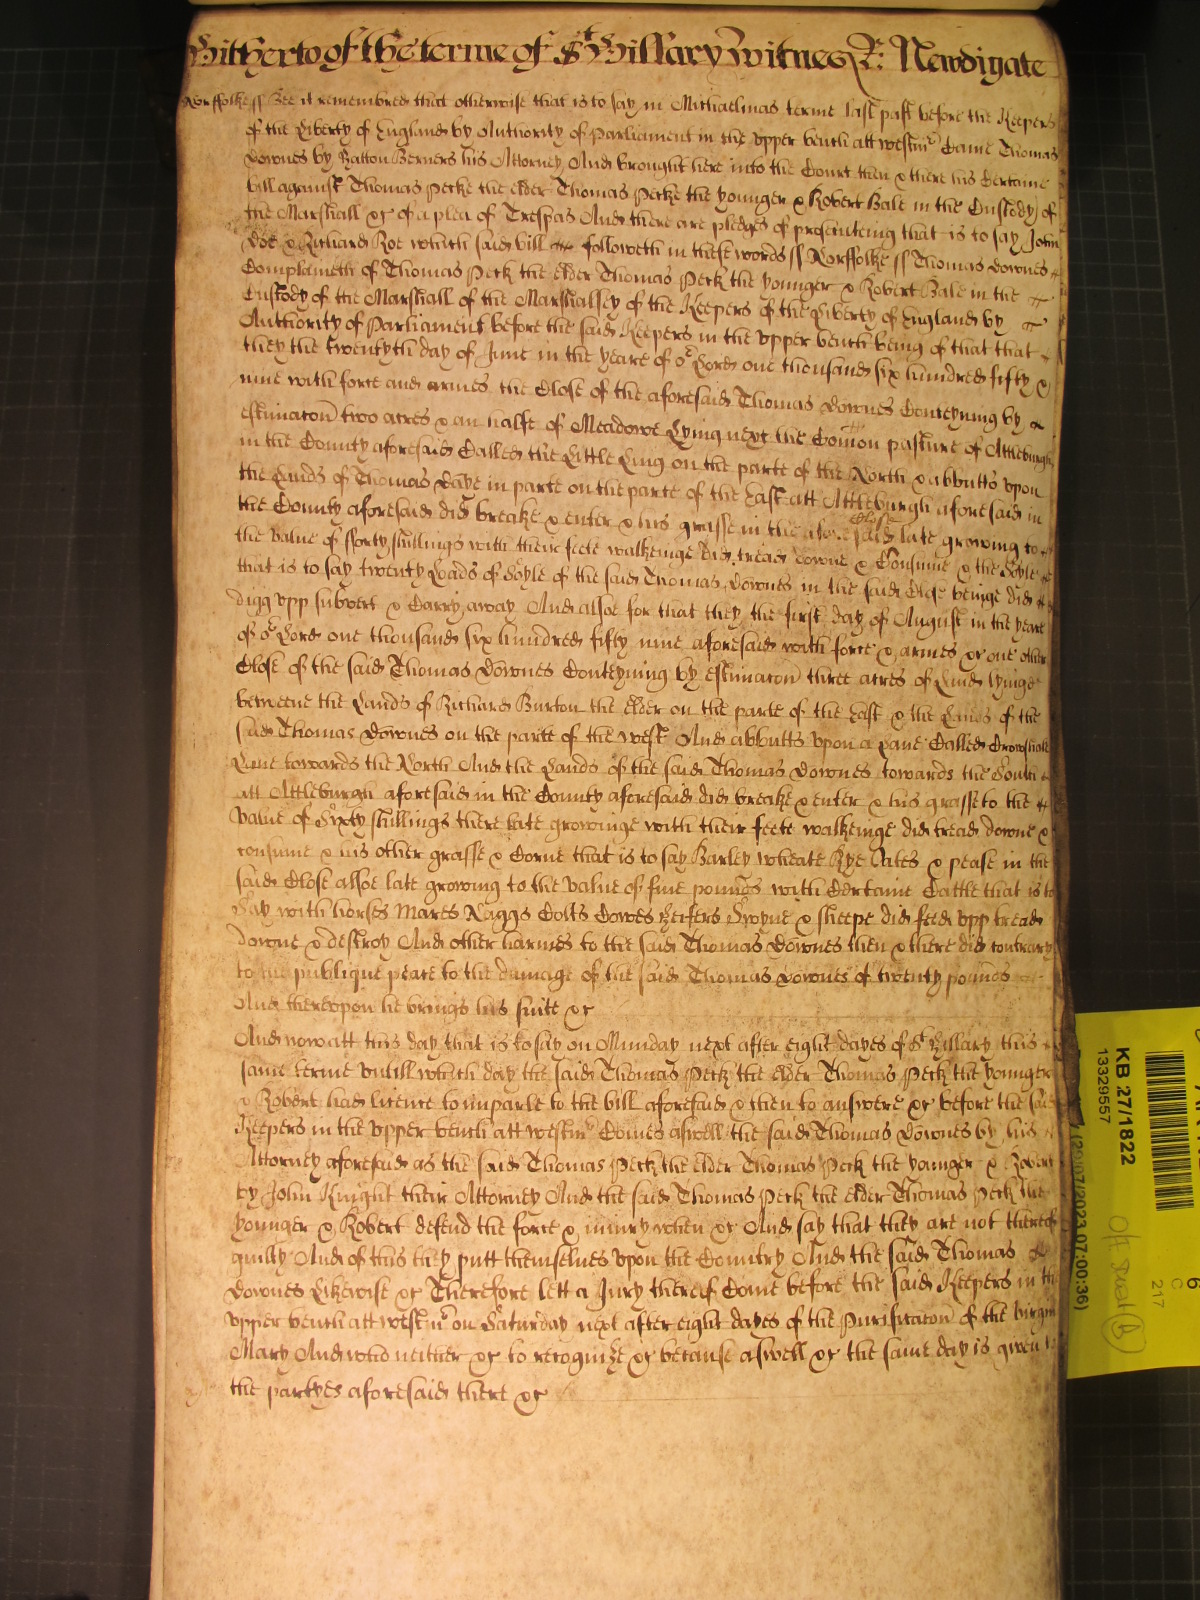 Hitherto of the terme of St Hillary Witnes R: Newdigate
Norffolke ss Bee it remembred that otherwise that is to say in Michaelmas terme last past before the Keepers
of the Liberty of England by Authority of Parliament in the upper bench att Westmr Came Thomas
Downes by Hatton Berners his Attorney And brought here into the Court then & there his Certaine
bill against Thomas Pecke the elder Thomas Pecke the younger & Robert Bale in the Custody of
the Marshall &c of a plea of Trespas And there are pledges of prosecuteing that is to say John
Doe & Richard Roe which said bill followeth in these words ss Norffolke ss Thomas Downes
Complaineth of Thomas Peck the elder Thomas Peck the younger & Robert Bale in the
Custody of the Marshall of the Marshallsey of the Keepers of the Liberty of England by
Authority of Parliament before the said Keepers in the upper bench being of that that
they the twentyth day of June in the yeare of or Lord one thousand six hundred fifty &
nine with force and armes the Close of the aforesaid Thomas Downes Conteyning by
estimacon two acres & an halfe of Meadowe Lying next the Comon pasture of Attleburgh
in the County aforesaid Called the Little Ling on the parte of the North & abbutts upon
the Lands of Thomas Dave in parte on the parte of the East att Attleburgh aforesaid in
the County aforesaid did breake & enter & his grasse in the aforesaid Close late growing to
the value of fforty shillings with their feete walkeinge did tread downe & Consume & the Soyle
that is to say twenty Loads of Soyle of the said Thomas Downes in the said Close beinge did
digg upp subvert & Carry away And alsoe for that they the first day of August in the yeare
of or Lord one thousand six hundred fifty nine aforesaid with force & armes &c one other
Close of the said Thomas Downes Conteyning by estimacon three acres of Land lyinge
betweene the Lands of Richard Burton the elder on the parte of the East & the Lands of the
said Thomas Downes on the parte of the West And abbutts upon a Lane Called Crowshall
Lane towards the North And the Lands of the said Thomas Downes towards the South
att Attleburgh aforesaid in the County aforesaid did breake & enter & his grasse to the
value of Sixty shillings there late growinge with their feete walkeinge did tread downe &
consume & his other grasse & Corne that is to say Barley Wheate Rye Oates & pease in the
said Close alsoe late growing to the value of five pounds with Certaine Cattle that is to
Say with horses Mares Naggs Colts Cowes Heifers Swyne & sheepe did feed upp tread
downe & destroy And other harmes to the said Thomas Downes then & there did contrary
to the publique peace to the damage of the said Thomas Downes of twenty pounds
And thereupon he brings his suite &c
And now att this day that is to say on Munday next after eight dayes of St Hillary this
same terme untill which day the said Thomas Peck the elder Thomas Peck the younger
& Robert had licence to imparle to the bill aforesaid & then to answere &c before the said
Keepers in the upper bench att Westmr Comes aswell the said Thomas Downes by his
Attorney aforesaid as the said Thomas Peck the elder Thomas Peck the younger & Robert
by John Knight their Attorney And the said Thomas Peck the elder Thomas Peck the
younger & Robert defend the force & injury when &c And say that they are not thereof
guilty And of this they putt themselves upon the Country And the said Thomas
Downes Likewise &c Therefore lett a Jury thereof Come before the said Keepers in the
upper bench att Westmr on Saturday next after eight dayes of the Purificacon of the virgin
Mary And who neither &c to recognize &c because aswell &c the same day is given to
the partyes aforesaid there &c
KB 27/1822
13329557
(20/07/2023 07:00:36)
C
217